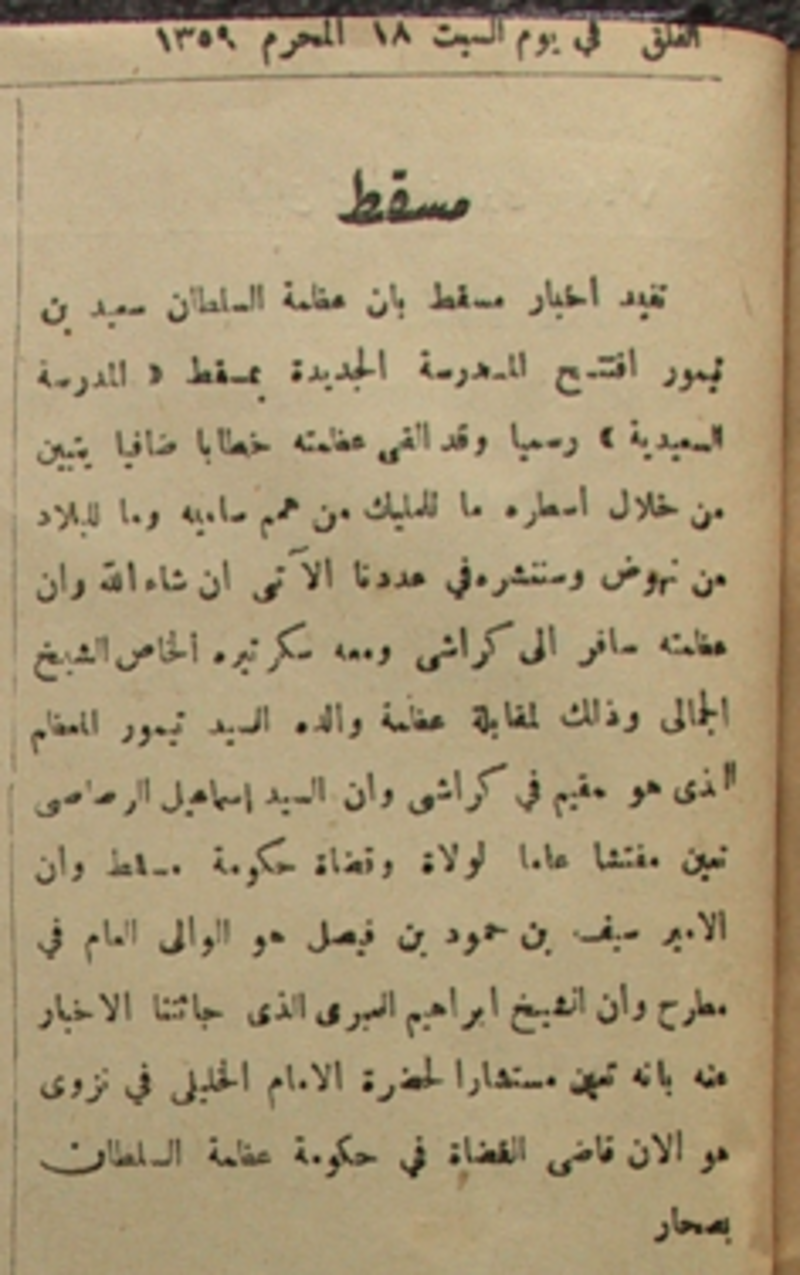 الفلق في يوم السبت ١٨ المحرم ١٣٥٩
مسقط
تفيد اخبار مسقط بان عظمة السلطان سعيد بن
تيمور افتتح المدرسة الجديدة بمسقط « المدرسة
السعيدية » رسميا وقد القى عظمته خطابا ضافيا يتبين
من خلال اسطره ما للمليك من همم ساميه وما للبلاد
من نهوض وسننشره في عددنا الآتى ان شاء الله وان
عظمته سافر الى كراتشى ومعه سكرتيره الخاص الشيخ
الجمالى وذلك لمقابلة عظمة والده السيد تيمور المعظم
الذى هو مقيم في كراتشى وان السيد إسماعيل الرصاصى
تعين مفتشا عاما لولاة وقضاة حكومة مسقط وان
الامير سيف بن حمود بن فيصل هو الوالى العام في
مطرح وان الشيخ ابراهيم العبرى الذى جائتنا الاخبار
عنه بانه تعين مستشارا لحضرة الامام الخليلى في نزوى
هو الان قاضى القضاة في حكومة عظمة السلطان
بصحار